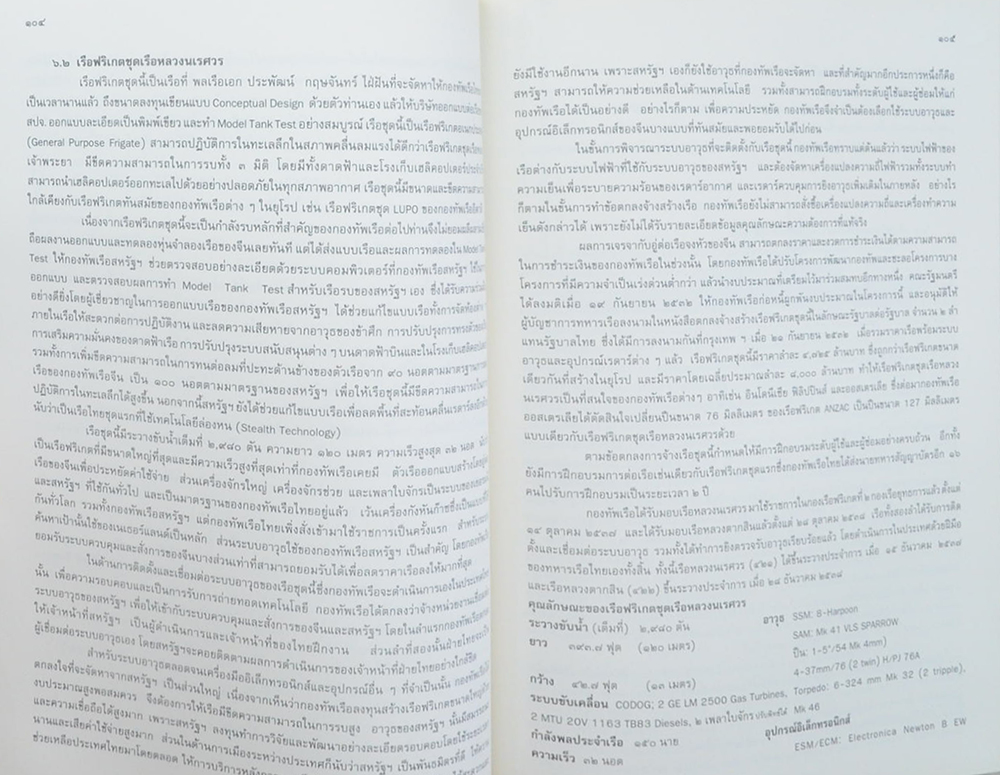 ๑๐๔
๖.๒ เรือฟริเกตชุดเรือหลวงนเรศวร
เรือฟริเกตชุดนี้เป็นเรือที่ พลเรือเอก ประพัฒน์ กฤษณจันทร์ ใฝ่ฝันที่จะจัดหาให้กองทัพเรือ
เป็นเวลานานแล้ว ถึงขนาดลงทุนเขียนแบบ Conceptual Design ด้วยตัวท่านเอง แล้วให้บริษัทออกแบบต่อเรือ
สปจ. ออกแบบละเอียดเป็นพิมพ์เขียว และทำ Model Tank Test อย่างสมบูรณ์ เรือชุดนี้เป็นเรือฟริเกตอเนกประสงค์
(General Purpose Frigate) สามารถปฏิบัติการในทะเลลึกในสภาพคลื่นลมแรงได้ดีกว่าเรือฟริเกตชุดเรือหลวง
เจ้าพระยา มีขีดความสามารถในการรบทั้ง ๓ มิติ โดยมีทั้งดาดฟ้าและโรงเก็บเฮลิคอปเตอร์ประจำเรือ
สามารถนำเฮลิคอปเตอร์ออกทะเลไปด้วยอย่างปลอดภัยในทุกสภาพอากาศ เรือชุดนี้มีขนาดและขีดความสามารถ
ใกล้เคียงกับเรือฟริเกตทันสมัยของกองทัพเรือต่าง ๆ ในยุโรป เช่น เรือฟริเกตชุด LUPO ของกองทัพเรืออิตาลี
เนื่องจากเรือฟริเกตชุดนี้จะเป็นกำลังรบหลักที่สำคัญของกองทัพเรือต่อไปท่านจึงไม่ยอม
ถือผลงานออกแบบและทดลองหุ่นจำลองเรือของจีนเลยทันที แต่ได้ส่งแบบเรือและผลการทดลองใน Model Tank
Test ให้กองทัพเรือสหรัฐฯ ช่วยตรวจสอบอย่างละเอียดด้วยระบบคอมพิวเตอร์ที่กองทัพเรือสหรัฐฯ ใช้ในการ
ออกแบบ และตรวจสอบผลการทำ Model Tank Test สำหรับเรือรบของสหรัฐฯ เอง ซึ่งได้รับความร่วมมือ
อย่างดียิ่งโดยผู้เชี่ยวชาญในการออกแบบเรือของกองทัพเรือสหรัฐฯ ได้ช่วยแก้ไขแบบเรือทั้งการจัดห้อง
ภายในเรือให้สะดวกต่อการปฏิบัติงาน และลดความเสียหายจากอาวุธของข้าศึก การปรับปรุงการทรงตัวของเรือ
การเสริมความมั่นคงของดาดฟ้าเรือ การปรับปรุงระบบสนับสนุนต่าง ๆ บนดาดฟ้าบินและในโรงเก็บเฮลิคอปเตอร์
รวมทั้งการเพิ่มขีดความสามารถในการทนต่อลมที่ปะทะด้านข้างของตัวเรือจาก ๙๐ นอตตามมาตรฐาน
เรือของกองทัพเรือจีน เป็น ๑๐๐ นอตตามมาตรฐานของสหรัฐฯ เพื่อให้เรือชุดนี้มีขีดความสามารถใน
ปฏิบัติการในทะเลลึกได้สูงขึ้น นอกจากนี้สหรัฐฯ ยังได้ช่วยแก้ไขแบบเรือเพื่อลดพื้นที่สะท้อนคลื่นเรดาร์
นับว่าเป็นเรือไทยชุดแรกที่ใช้เทคโนโลยีล่องหน (Stealth Technology)
เรือชุดนี้มีระวางขับน้ำเต็มที่ ๒,๙๘๐ ตัน ความยาว ๑๒๐ เมตร ความเร็วสูงสุด ๓๒ นอต
เป็นเรือฟริเกตที่มีขนาดใหญ่ที่สุดและมีความเร็วสูงที่สุดเท่าที่กองทัพเรือเคยมี ตัวเรือออกแบบสร้างโดย
เรือของจีนเพื่อประหยัดค่าใช้จ่าย ส่วนเครื่องจักรใหญ่ เครื่องจักรช่วย และเพลาใบจักรเป็นระบบของ
และสหรัฐฯ ที่ใช้กันทั่วไป และเป็นมาตรฐานของกองทัพเรือไทยอยู่แล้ว เว้นเครื่องกังหันก๊าซซึ่งเป็น
กันทั่วโลก รวมทั้งกองทัพเรือสหรัฐฯ แต่กองทัพเรือไทยเพิ่งสั่งเข้ามาใช้ราชการเป็นครั้งแรก สำหรับ
ค้นหาเป้านั้นใช้ของเนเธอร์แลนด์เป็นหลัก ส่วนระบบอาวุธใช้ของกองทัพเรือสหรัฐฯ เป็นสำคัญ โดยกองทัพเรือ
ยอมรับระบบควบคุมและสั่งการของจีนบางส่วนเท่าที่สามารถยอมรับได้เพื่อลดราคาเรือลงให้มากที่สุด
ในด้านการติดตั้งและเชื่อมต่อระบบอาวุธของเรือชุดนี้ซึ่งกองทัพเรือจะดำเนินการเองในประเทศ
นั้น เพื่อความรอบคอบและเป็นการรับการถ่ายทอดเทคโนโลยี กองทัพเรือได้ตกลงว่าจ้างหน่วยงาน
ระบบอาวุธของสหรัฐฯ เพื่อให้เข้ากับระบบควบคุมและสั่งการของจีนและสหรัฐฯ โดยในลำแรกกองทัพเรือ
ให้เจ้าหน้าที่สหรัฐฯ เป็นผู้ดำเนินการและเจ้าหน้าที่ของไทยฝึกงาน ส่วนลำที่สองนั้นฝ่ายไทยจะเป็น
ผู้เชื่อมต่อระบบอาวุธเอง โดยสหรัฐฯจะคอยติดตามผลการดำเนินการของเจ้าหน้าที่ฝ่ายไทยอย่างใกล้ชิด
สำหรับระบบอาวุธตลอดจนเครื่องมืออิเล็กทรอนิกส์และอุปกรณ์อื่น ๆ ที่จำเป็นนั้น กองทัพเรือ
ตกลงใจที่จะจัดหาจากสหรัฐฯ เป็นส่วนใหญ่ เนื่องจากเห็นว่ากองทัพเรือลงทุนสร้างเรือฟริเกตขนาดใหญ่
งบประมาณสูงพอสมควร จึงต้องการให้เรือมีขีดความสามารถในการรบสูง อาวุธของสหรัฐฯ นั้นมีสมรรถนะ
และความเชื่อถือได้สูงมาก เพราะสหรัฐฯ ลงทุนทำการวิจัยและพัฒนาอย่างละเอียดรอบคอบโดยใช้ระยะเวลา
นานและเสียค่าใช้จ่ายสูงมาก ส่วนในด้านการเมืองระหว่างประเทศก็นับว่าสหรัฐฯ เป็นพันธมิตรที่ดี
ช่วยเหลือประเทศไทยมาโดยตลอด ให้การบริการหลัง
๑๐๕
ยังมีใช้งานอีกนาน เพราะสหรัฐฯ เองก็ยังใช้อาวุธที่กองทัพเรือจะจัดหา และที่สำคัญมากอีกประการหนึ่งก็คือ
สหรัฐฯ สามารถให้ความช่วยเหลือในด้านเทคโนโลยี รวมทั้งสามารถฝึกอบรมทั้งระดับผู้ใช้และผู้ซ่อมให้แก่
กองทัพเรือได้เป็นอย่างดี อย่างไรก็ตาม เพื่อความประหยัด กองทัพเรือจึงจำเป็นต้องเลือกใช้ระบบอาวุธและ
อุปกรณ์อิเล็กทรอนิกส์ของจีนบางแบบที่ทันสมัยและพอยอมรับได้ไปก่อน
ในขั้นการพิจารณาระบบอาวุธที่จะติดตั้งกับเรือชุดนี้ กองทัพเรือทราบแต่ต้นแล้วว่า ระบบไฟฟ้าของ
เรือต่างกับระบบไฟฟ้าที่ใช้กับระบบอาวุธของสหรัฐฯ และต้องจัดหาเครื่องแปลงความถี่ไฟฟ้ารวมทั้งระบบทำ
ความเย็นเพื่อระบายความร้อนของเรดาร์อากาศ และเรดาร์ควบคุมการยิงอาวุธเพิ่มเติมในภายหลัง อย่างไร
ก็ตามในขั้นการทำข้อตกลงจ้างสร้างเรือ กองทัพเรือยังไม่สามารถสั่งซื้อเครื่องแปลงความถี่และเครื่องทำความ
เย็นดังกล่าวได้ เพราะยังไม่ได้รับรายละเอียดข้อมูลคุณลักษณะความต้องการที่แท้จริง
ผลการเจรจากับอู่ต่อเรือจงหัวของจีน สามารถตกลงราคาและงวดการชำระเงินได้ตามความสามารถ
ในการชำระเงินของกองทัพเรือในช่วงนั้น โดยกองทัพเรือได้ปรับโครงการพัฒนากองทัพและชะลอโครงการบาง
โครงการที่มีความจำเป็นเร่งด่วนต่ำกว่า แล้วนำงบประมาณที่เตรียมไว้มาร่วมสมทบอีกทางหนึ่ง คณะรัฐมนตรี
ได้ลงมติเมื่อ ๑๙ กันยายน ๒๕๓๒ ให้กองทัพเรือก่อหนี้ผูกพันงบประมาณในโครงการนี้ และอนุมัติให้
ผู้บัญชาการทหารเรือลงนามในหนังสือตกลงจ้างสร้างเรือฟริเกตชุดนี้ในลักษณะรัฐบาลต่อรัฐบาล จำนวน ๒ ลำ
แทนรัฐบาลไทย ซึ่งได้มีการลงนามกันที่กรุงเทพ ฯ เมื่อ ๒๑ กันยายน ๒๕๓๒ เมื่อรวมราคาเรือพร้อมระบบ
อาวุธและอุปกรณ์เรดาร์ต่าง ๆ แล้ว เรือฟริเกตชุดนี้มีราคาลำละ ๔,๘๒๕ ล้านบาท ซึ่งถูกกว่าเรือฟริเกตขนาด
เดียวกันที่สร้างในยุโรป และมีราคาโดยเฉลี่ยประมาณลำละ ๘,๐๐๐ ล้านบาท ทำให้เรือฟริเกตชุดเรือหลวง
นเรศวรเป็นที่สนใจของกองทัพเรือต่างๆ อาทิเช่น อินโดนีเซีย ฟิลิปปินส์ และออสเตรเลีย ซึ่งต่อมากองทัพเรือ
ออสเตรเลียได้ตัดสินใจเปลี่ยนปืนขนาด 76 มิลลิเมตร ของเรือฟริเกต ANZAC เป็นปืนขนาด 127 มิลลิเมตร
แบบเดียวกับเรือฟริเกตชุดเรือหลวงนเรศวรด้วย
ตามข้อตกลงการจ้างเรือชุดนี้กำหนดให้มีการฝึกอบรมระดับผู้ใช้และผู้ซ่อมอย่างครบถ้วน อีกทั้ง
ยังมีการฝึกอบรมการต่อเรือเช่นเดียวกับเรือฟริเกตชุดแรกซึ่งกองทัพเรือไทยได้ส่งนายทหารสัญญาบัตรอีก ๑๖
คนไปรับการฝึกอบรมเป็นระยะเวลา ๒ ปี
กองทัพเรือไทยได้รับมอบเรือหลวงนเรศวร มาใช้ราชการในกองเรือฟริเกตที่ ๒ กองเรือยุทธการแล้ว ตั้งแต่
๑๙ ตุลาคม ๒๕๓๗ และได้รับมอบเรือหลวงตากสินแล้วตั้งแต่ ๒๘ ตุลาคม ๒๕๓๘ เรือทั้งสองลำได้รับการติด
ตั้งและเชื่อมต่อระบบอาวุธ รวมทั้งได้ทำการยิงตรวจรับอาวุธเรียบร้อยแล้ว โดยดำเนินการในประเทศด้วยฝีมือ
ของทหารเรือไทยเองทั้งสิ้น ทั้งนี้เรือหลวงนเรศวร (๔๒๑) ได้ขึ้นระวางประจำการ เมื่อ ๑๕ ธันวาคม ๒๕๓๗
และเรือหลวงตากสิน (๔๒๒) ขึ้นระวางประจำการ เมื่อ ๒๘ ธันวาคม ๒๕๓๘
คุณลักษณะของเรือฟริเกตชุดเรือหลวงนเรศวร
ระวางขับน้ำ (เต็มที่) ๒,๙๘๐ ตัน
ยาว ๓๙๓.๗ ฟุต (๑๒๐ เมตร)
กว้าง ๔๒.๗ ฟุต (๑๓ เมตร)
ระบบขับเคลื่อน CODOG; 2 GE LM 2500 Gas Turbines,
2 MTU 20V 1163 TB83 Diesels, ๒ เพลาใบจักร ปรับพิทช์ได้
กำลังพลประจำเรือ ๑๕๐ นาย
ความเร็ว ๓๒ นอต
อาวุธ SSM: 8-Harpoon
SAM: Mk 41 VLS SPARROW
ปืน: 1-5"/54 (Mk 4mm)
4-37mm/76 (2 twin) H/PJ 76A
Torpedo: 6-324 mm Mk 32 (2 tripple),
Mk 46
อุปกรณ์อิเล็กทรอนิกส์
ESM/ECM: Electronica Newton B EW